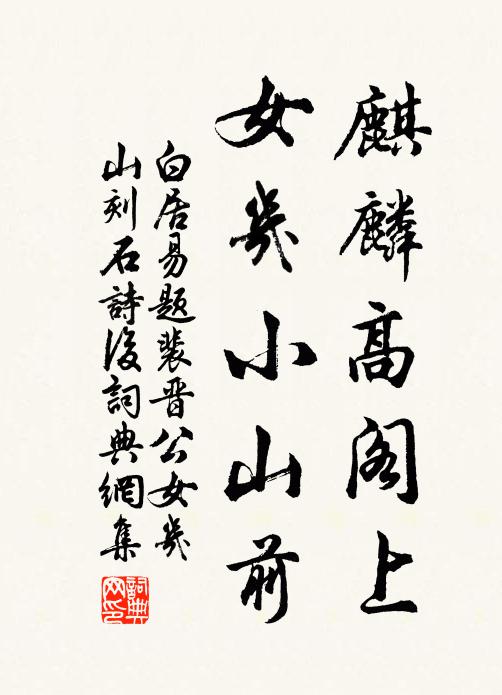 麒麟高阁上
女幾小山前
白居易題裴晋公女幾
山刻石詩後詞典網集
詞典
网印